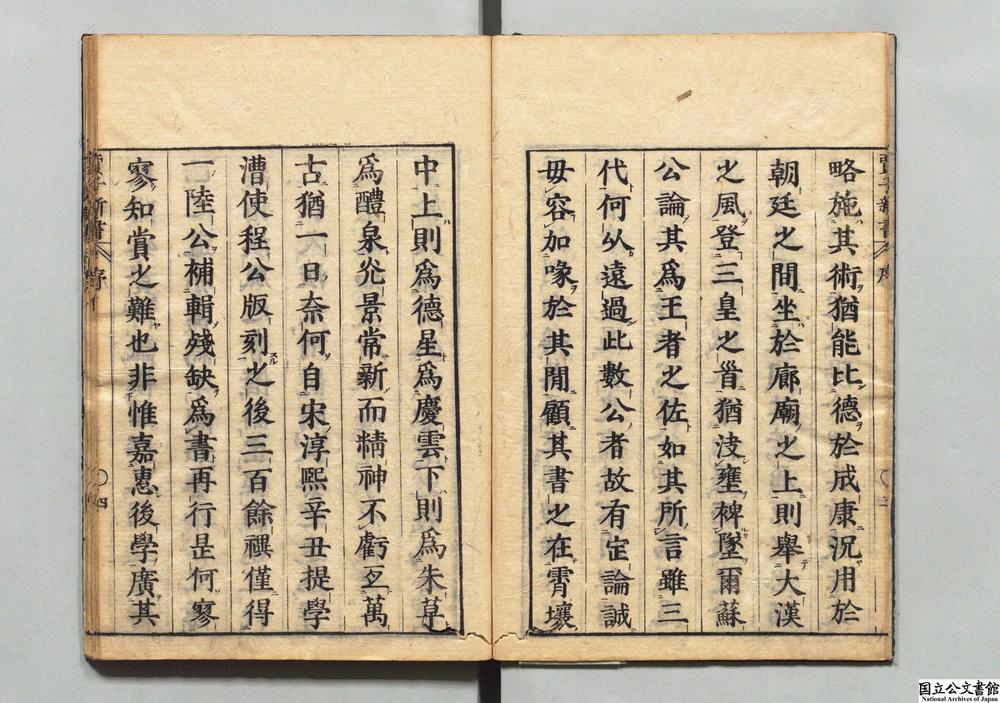 略施其術猶能比德於成康況用於
朝廷之間坐於廊廟之上則舉大漢
之風登三皇之首猶決壅裨墜爾蘇
公論其爲王者之佐如其所言雖三
代何以遠過此數公者故有定論誠
毋容加喙於其閒顧其書之在霄壤
中上則爲德星爲慶雲下則爲朱草
爲醴泉光景常新而精神不虧亙萬
古猶一日奈何自宋淳熙辛丑提學
漕使程公版刻之後三百餘禩僅得
一陸公補輯殘缺爲書再行昰何寥
寥知賞之難也非惟嘉惠後學廣其
賈子新書 序
四
国立公文書館
National Archives of Japan